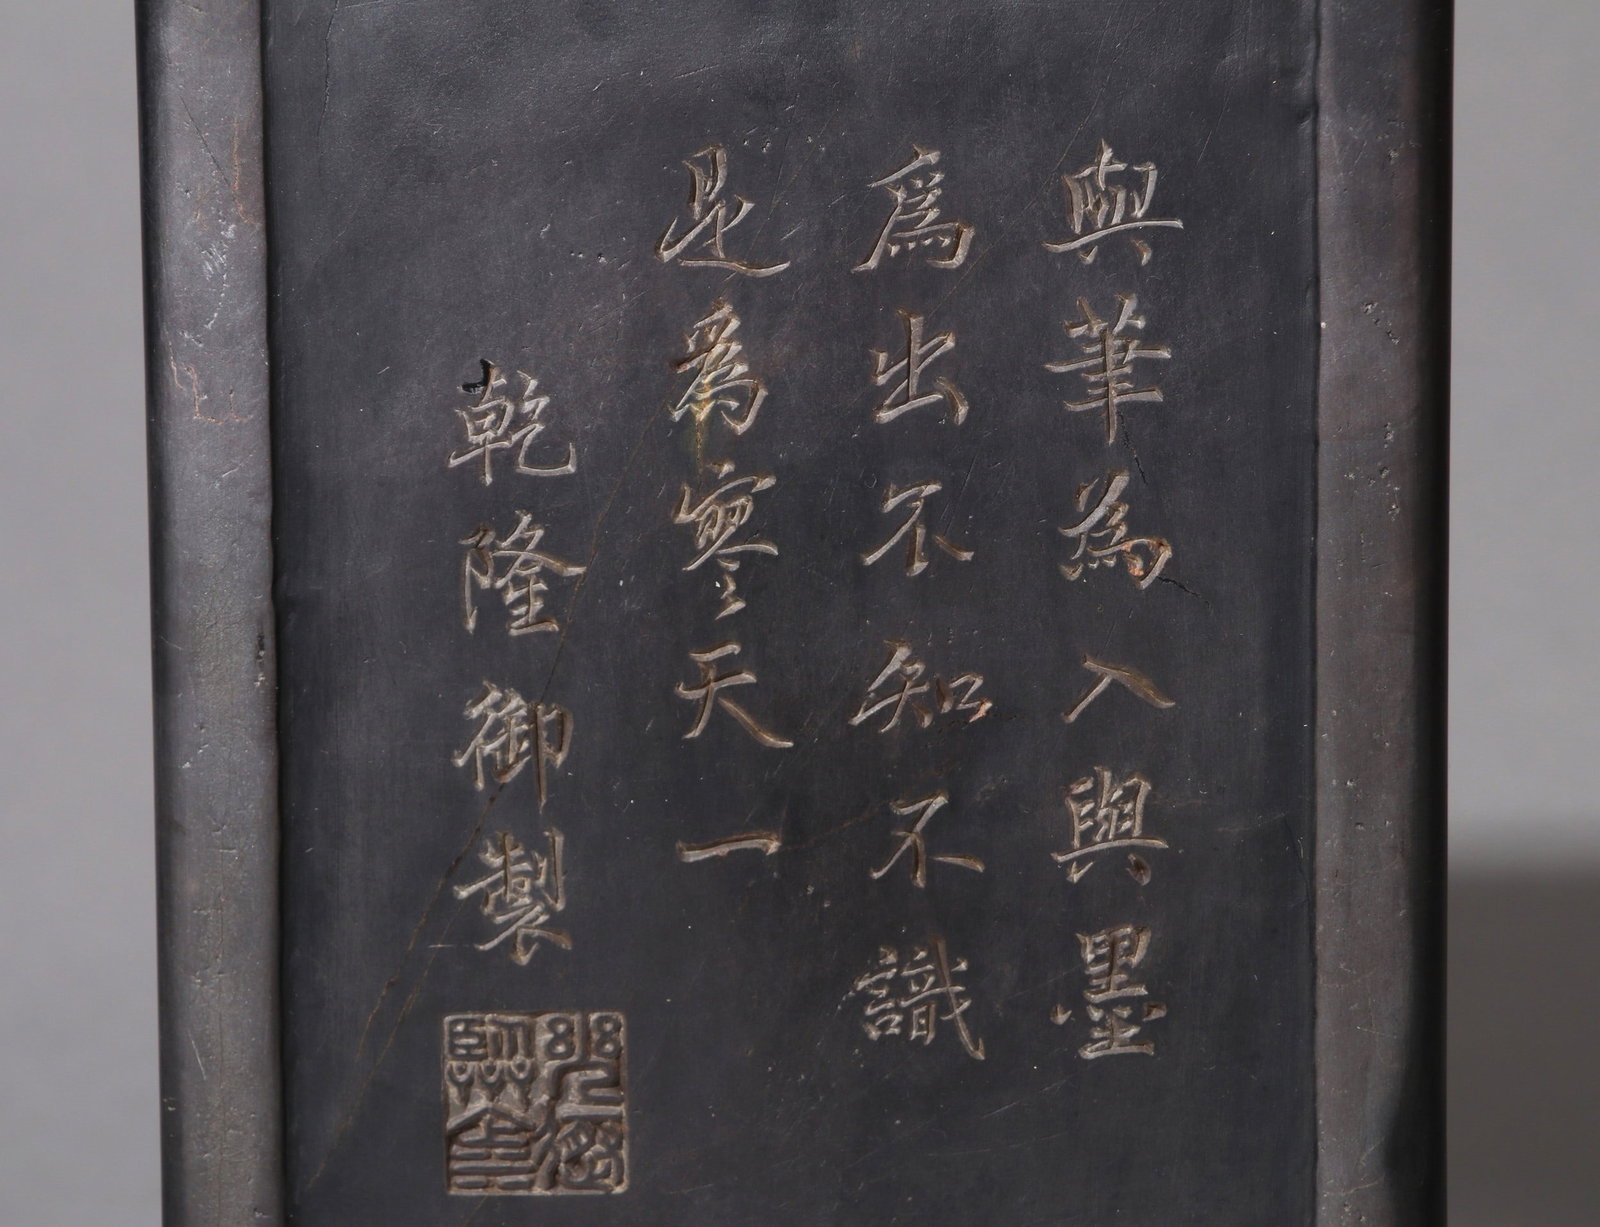 與筆為入與墨
爲出不知不識
是爲寥天一
乾隆御製